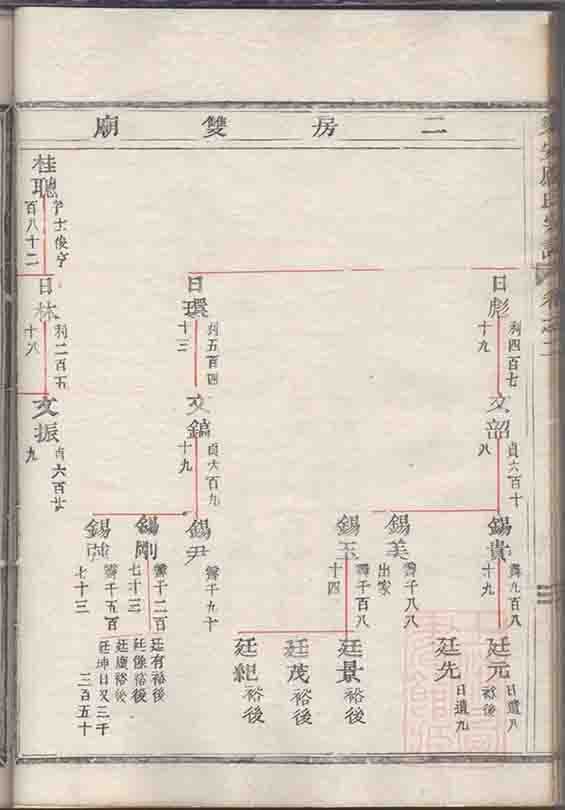 二房雙廟
日彪
利四百七
十九
文韶
貞六百十
八
錫貴
霽九百八
十九
廷元
日遺八
裕後
廷先
日遺九
錫美
霽千八八
出家
錫玉
霽千百八
十四
廷景裕後
廷茂裕後
廷紀裕後
日環
利五百四
十三
文鎬
貞六百九
十九
錫尹
霽千九十
錫剛
霽千二百
七十三
廷有裕後
廷像裕後
廷慶裕後
廷坤日又三千
三百五十
霽千五百
七十三
桂聰
字士俊亨
百八十二
日林
利二百五
十八
文振
貞六百廿
九